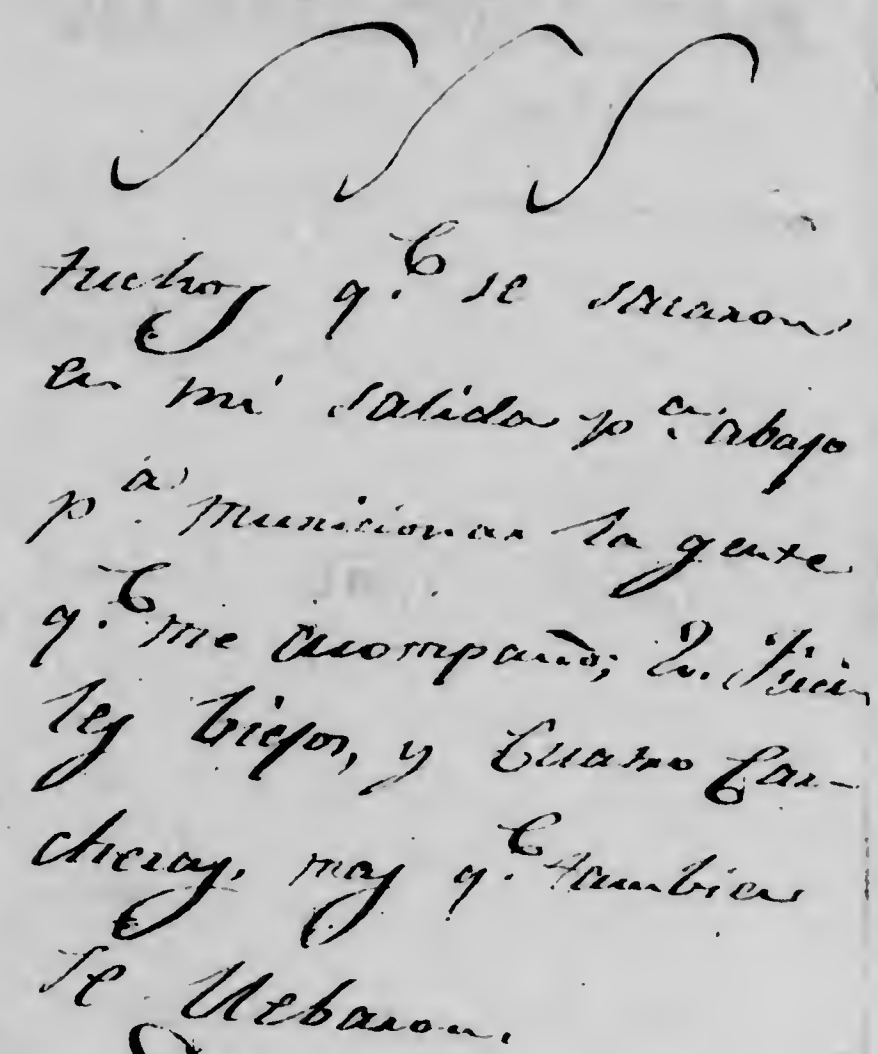 tuchos q.e se sacaron
en mi salida p.a abajo
p.a municionar la gente
q.e me acompaño; 2. Fuci-
les biejos, y Cuatro Car-
cheras, mas q.e tambien
se llebaron.